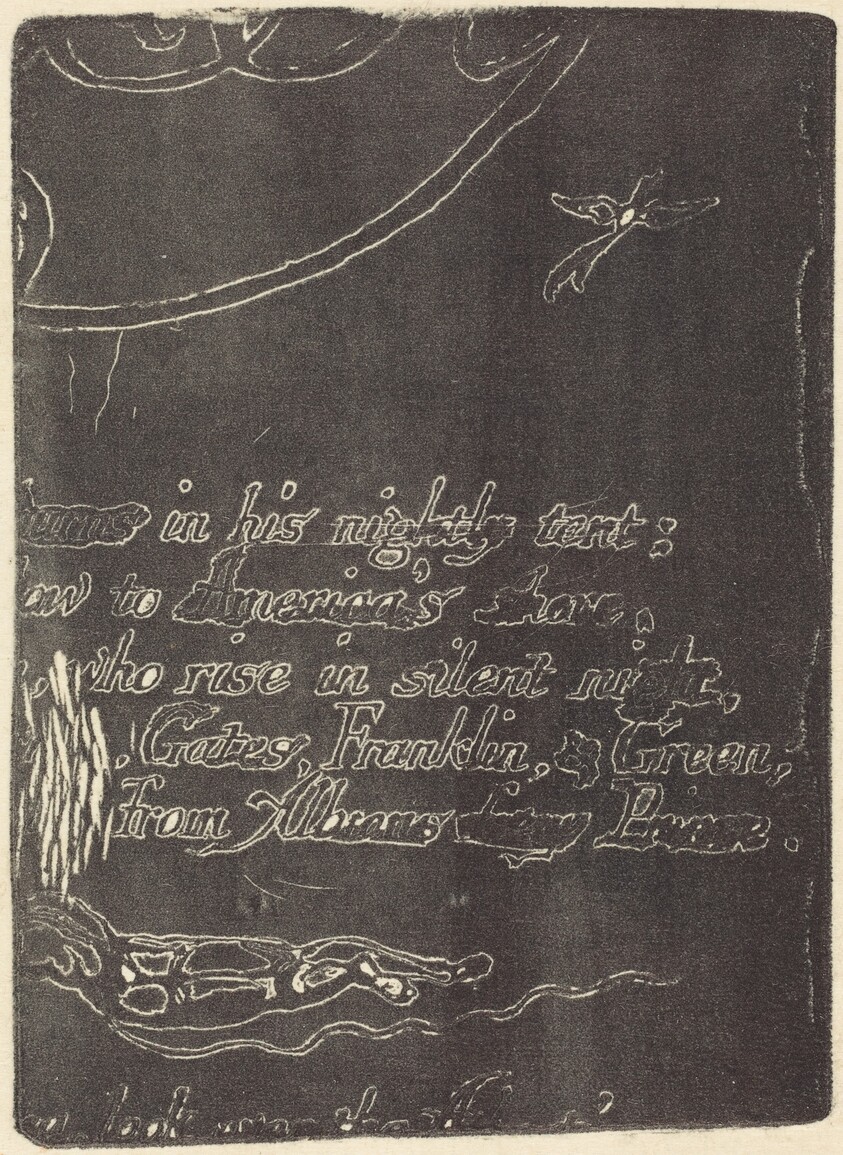 urns in his nightly tent:
ow to America's shore;
, who rise in silent night,
, Gates, Franklin, & Green,
from Albions fiery Prince.
look over the